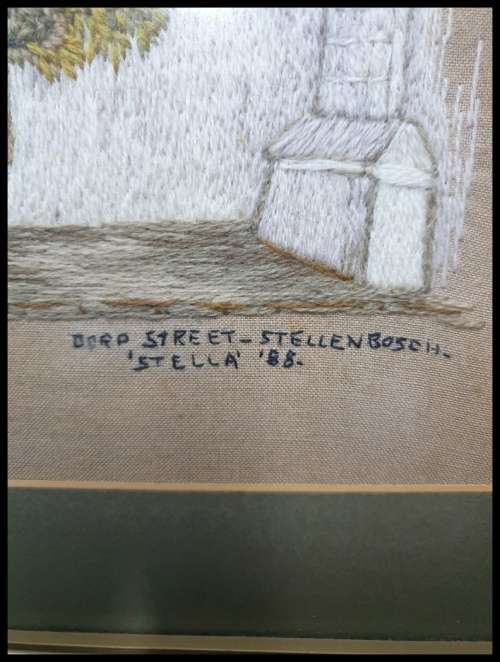 DORP STREET - STELLENBOSCH -
'STELLA' '88 -